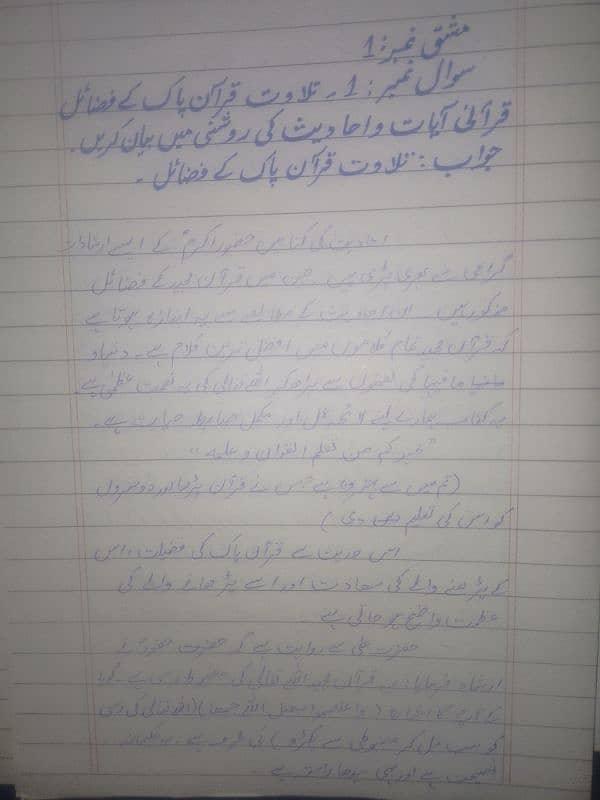 مشق نمبر: 1
سوال نمبر: 1 ۔ تلاوت قرآن پاک کے فضائل
قرآنی آیات و احادیث کی روشنی میں بیان کریں۔
جواب: تلاوت قرآن پاک کے فضائل ۔
احادیث کی کتابیں حضور اکرمؐ کے ایسے ارشادات
گرامی سے بھری پڑی ہیں۔ جن میں قرآن مجید کے فضائل
مذکور ہیں۔ ان احادیث کے مطالعہ سے یہ اندازہ ہوتا ہے
کہ قرآن مجید تمام کلاموں میں افضل ترین کلام ہے۔ دنیا و
مافیہا کی نعمتوں سے بڑھ کر اللہ تعالیٰ کی یہ نعمت عظمیٰ ہے۔
یہ کتاب ہمارے لیئے لائحہ عمل اور مکمل ضابطہ حیات ہے۔
"خیرکم من تعلم القرآن و علمہ"
(تم میں سے بہتر وہ ہے جس نے قرآن پڑھا اور دوسروں
کو اس کی تعلیم دی)
اس حدیث سے قرآن پاک کی فضیلت ، اس
کے پڑھنے والے کی سعادت اور اسے پڑھانے والے کی
عظمت واضح ہو جاتی ہے
حضرت علی سے روایت ہے کہ حضرت محمدؐ نے
ارشاد فرمایا: یہ قرآن مجید اللہ تعالیٰ کی مضبوط رسی ہے۔ گویا
(واعتصموا بحبل اللہ جمیعا) (اللہ تعالیٰ کی رسی
کو سب مل کر مضبوطی سے پکڑو) کی طرف ہے۔
نصیحت ہے اور یہی سیدھا راستہ ہے۔